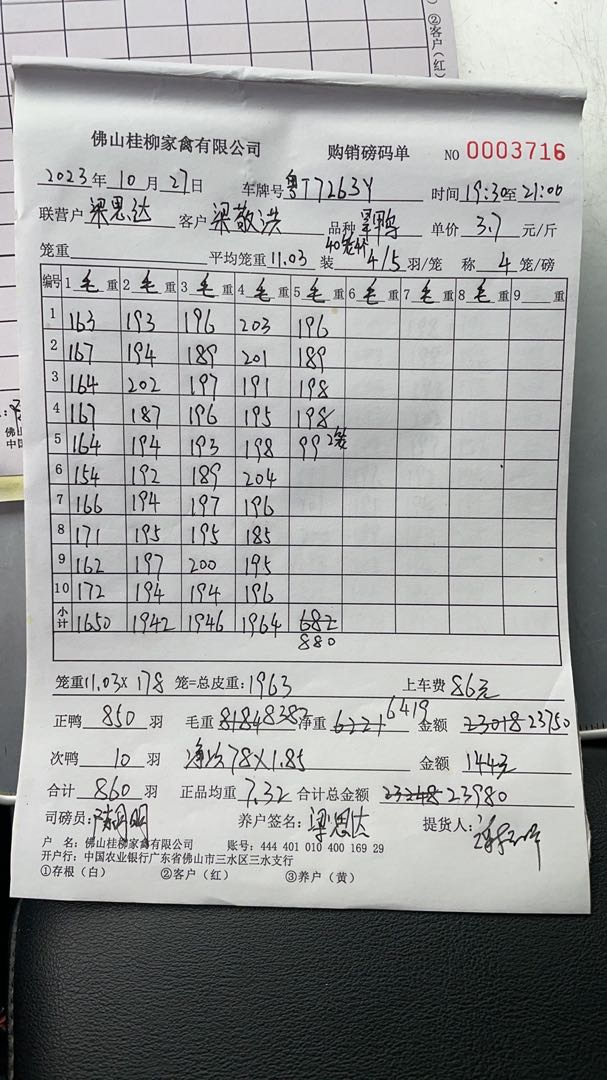 ②客户(红)
佛山桂柳家禽有限公司 购销磅码单 NO 0003716
2023年10月27日 车牌号粤T7263Y 时间19:30至21:00
联营户 梁思达 客户 梁敬洪 品种 单价 3.7 元/斤
笼重 平均笼重11.03 装 4/5 羽/笼 称 4 笼/磅
编号 1 毛 重 2 毛 重 3 毛 重 4 毛 重 5 毛 重 6 毛 重 7 毛 重 8 毛 重 9 重
1 163 193 196 203 196
2 167 194 189 201 189
3 164 202 197 191 198
4 167 187 196 195 198
5 164 194 193 198 99 2笼
6 154 192 189 204
7 166 194 197 196
8 171 195 195 185
9 162 197 200 195
10 172 194 194 196
小计 1650 1942 1946 1964 682
880
笼重11.03×178 笼=总皮重:1963 上车费 86元
正鸭 850 羽 毛重 8184 8382 净重 6221 6419 金额 23018 23750
次鸭 10 羽 净次78×1.85 金额 144元
合计 860 羽 正品均重 7.32 合计总金额 23248 23980
司磅员: 养户签名: 梁思达 提货人:
户 名: 佛山桂柳家禽有限公司 账号: 444 401 010 400 169 29
开户行: 中国农业银行广东省佛山市三水区三水支行
①存根(白) ②客户(红) ③养户(黄)